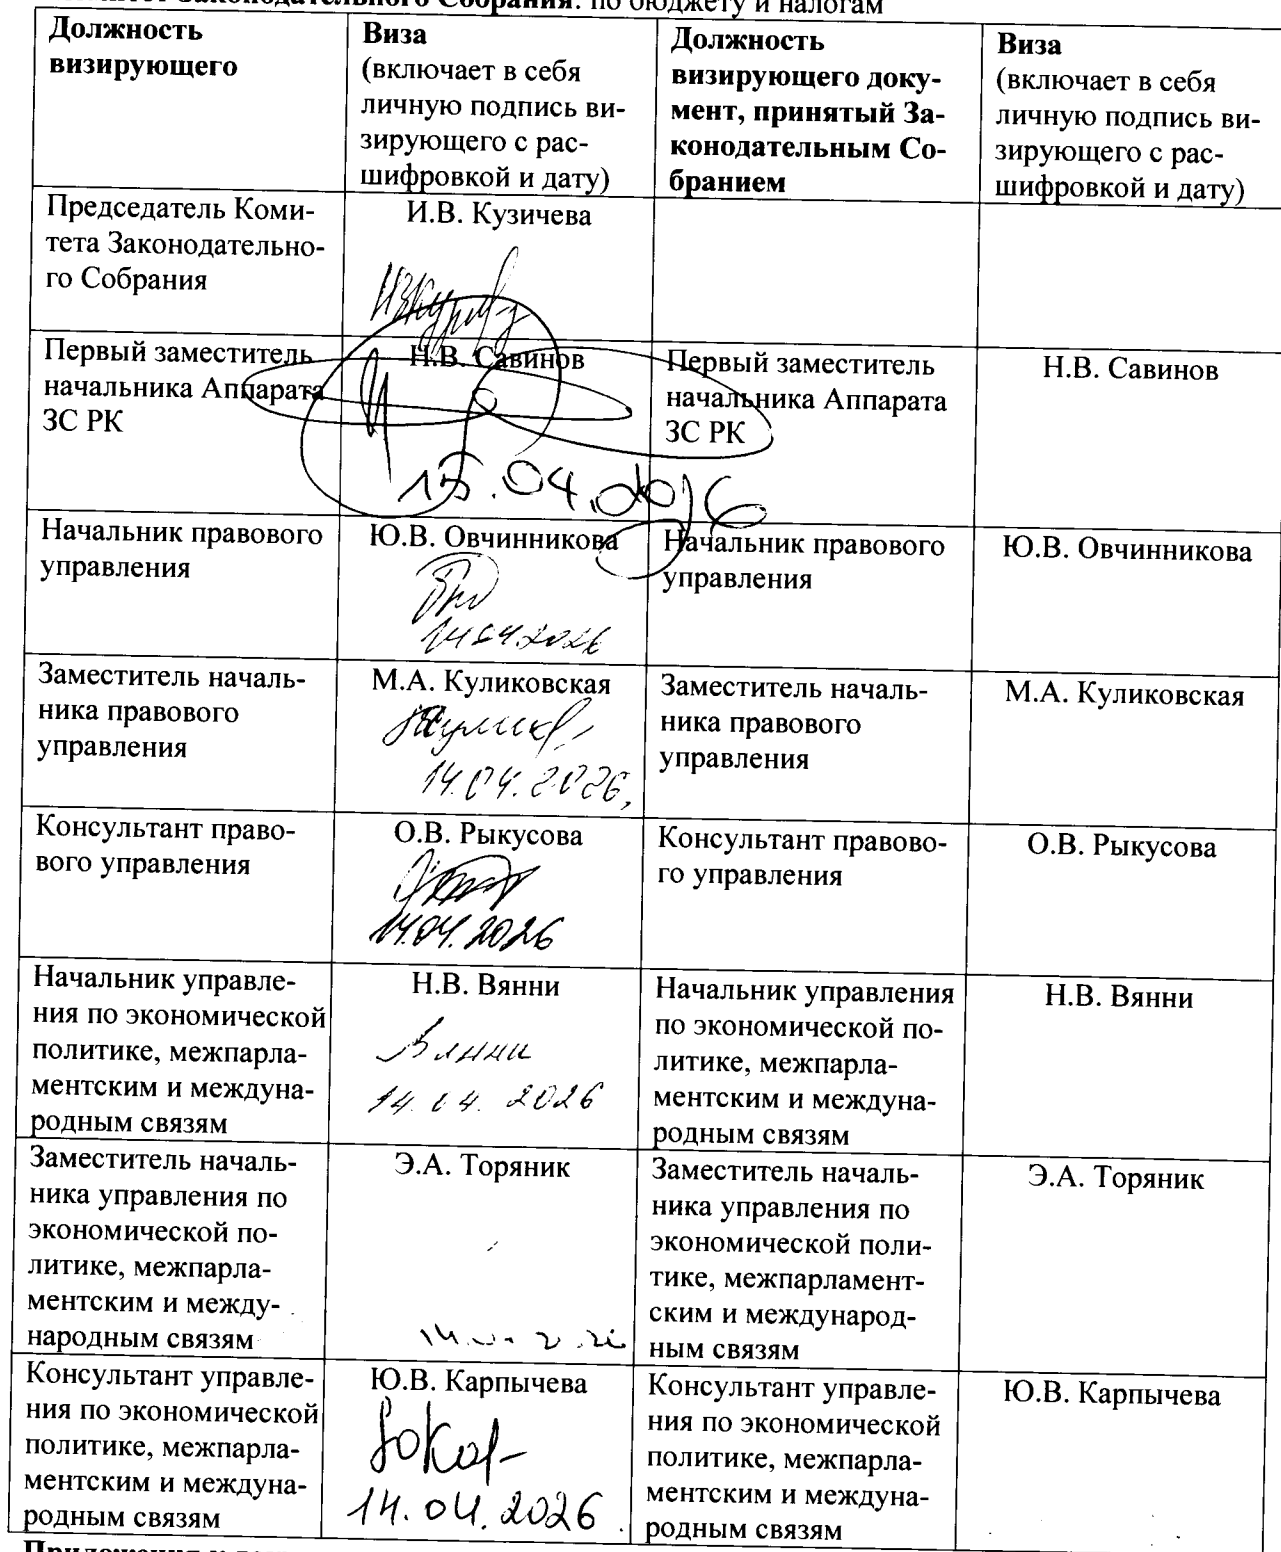 Законодательного Собрания: по бюджету и налогам
Должность
визирующего
Виза
(включает в себя
личную подпись ви-
зирующего с рас-
шифровкой и дату)
Должность
визирующего доку-
мент, принятый За-
конодательным Со-
бранием
Виза
(включает в себя
личную подпись ви-
зирующего с рас-
шифровкой и дату)
Председатель Коми-
тета Законодательно-
го Собрания
И.В. Кузичева
Первый заместитель
начальника Аппарата
ЗС РК
Н.В. Савинов
15.04.2026
Первый заместитель
начальника Аппарата
ЗС РК
Н.В. Савинов
Начальник правового
управления
Ю.В. Овчинникова
14.04.2026
Начальник правового
управления
Ю.В. Овчинникова
Заместитель началь-
ника правового
управления
М.А. Куликовская
14.04.2026
Заместитель началь-
ника правового
управления
М.А. Куликовская
Консультант право-
вого управления
О.В. Рыкусова
14.04.2026
Консультант правово-
го управления
О.В. Рыкусова
Начальник управле-
ния по экономической
политике, межпарла-
ментским и междуна-
родным связям
Н.В. Вянни
Вянни
14.04.2026
Начальник управления
по экономической по-
литике, межпарла-
ментским и междуна-
родным связям
Н.В. Вянни
Заместитель началь-
ника управления по
экономической по-
литике, межпарла-
ментским и между-
народным связям
Э.А. Торяник
Заместитель началь-
ника управления по
экономической поли-
тике, межпарламент-
ским и международ-
ным связям
Э.А. Торяник
Консультант управле-
ния по экономической
политике, межпарла-
ментским и междуна-
родным связям
Ю.В. Карпычева
14.04.2026
Консультант управле-
ния по экономической
политике, межпарла-
ментским и междуна-
родным связям
Ю.В. Карпычева